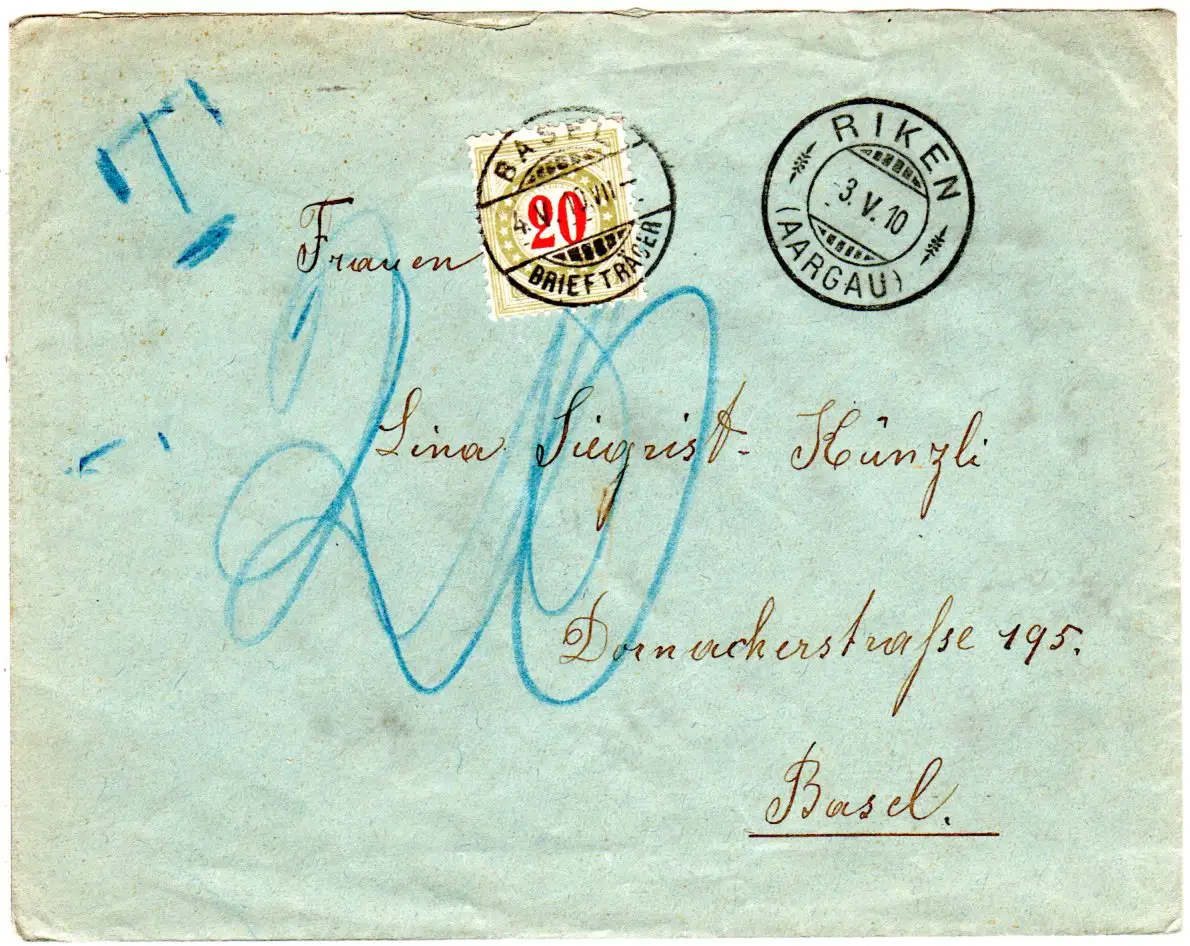 T
BASEL 1
4.V.10.VII
BRIEFTRÄGER
20
RIKEN
3.V.10
(AARGAU)
Frauen
20
Lina Siegrist-Künzli
Dornacherstraſse 195.
Basel.